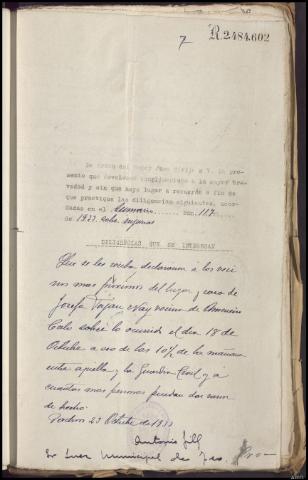 7
R.2484.602
De orden del señor Juez dirijo a V. la pre-
sente que devolverá cumplimentada a la mayor bre-
vedad y sin que haya lugar a recuerdo a fin de
que practique las diligencias siguientes, acor-
dadas en el Sumario num. 117
de 1933 sobre injurias
DILIGENCIAS QUE SE INTERESAN
Que se les reciba declaracion á los veci
nos mas proximos del lugar y casa de
Josefa Tojan Nay vecina de
Calo sobre lo ocurrido el dia 18 de
Octubre a eso de las 10½ de la mañana
entre aquella y la Guardia Civil y a
cuantas mas personas puedan dar razon
de hecho.
23 Octubre de 1933
Antonio Gill
Sr Juez Municipal de Teo.